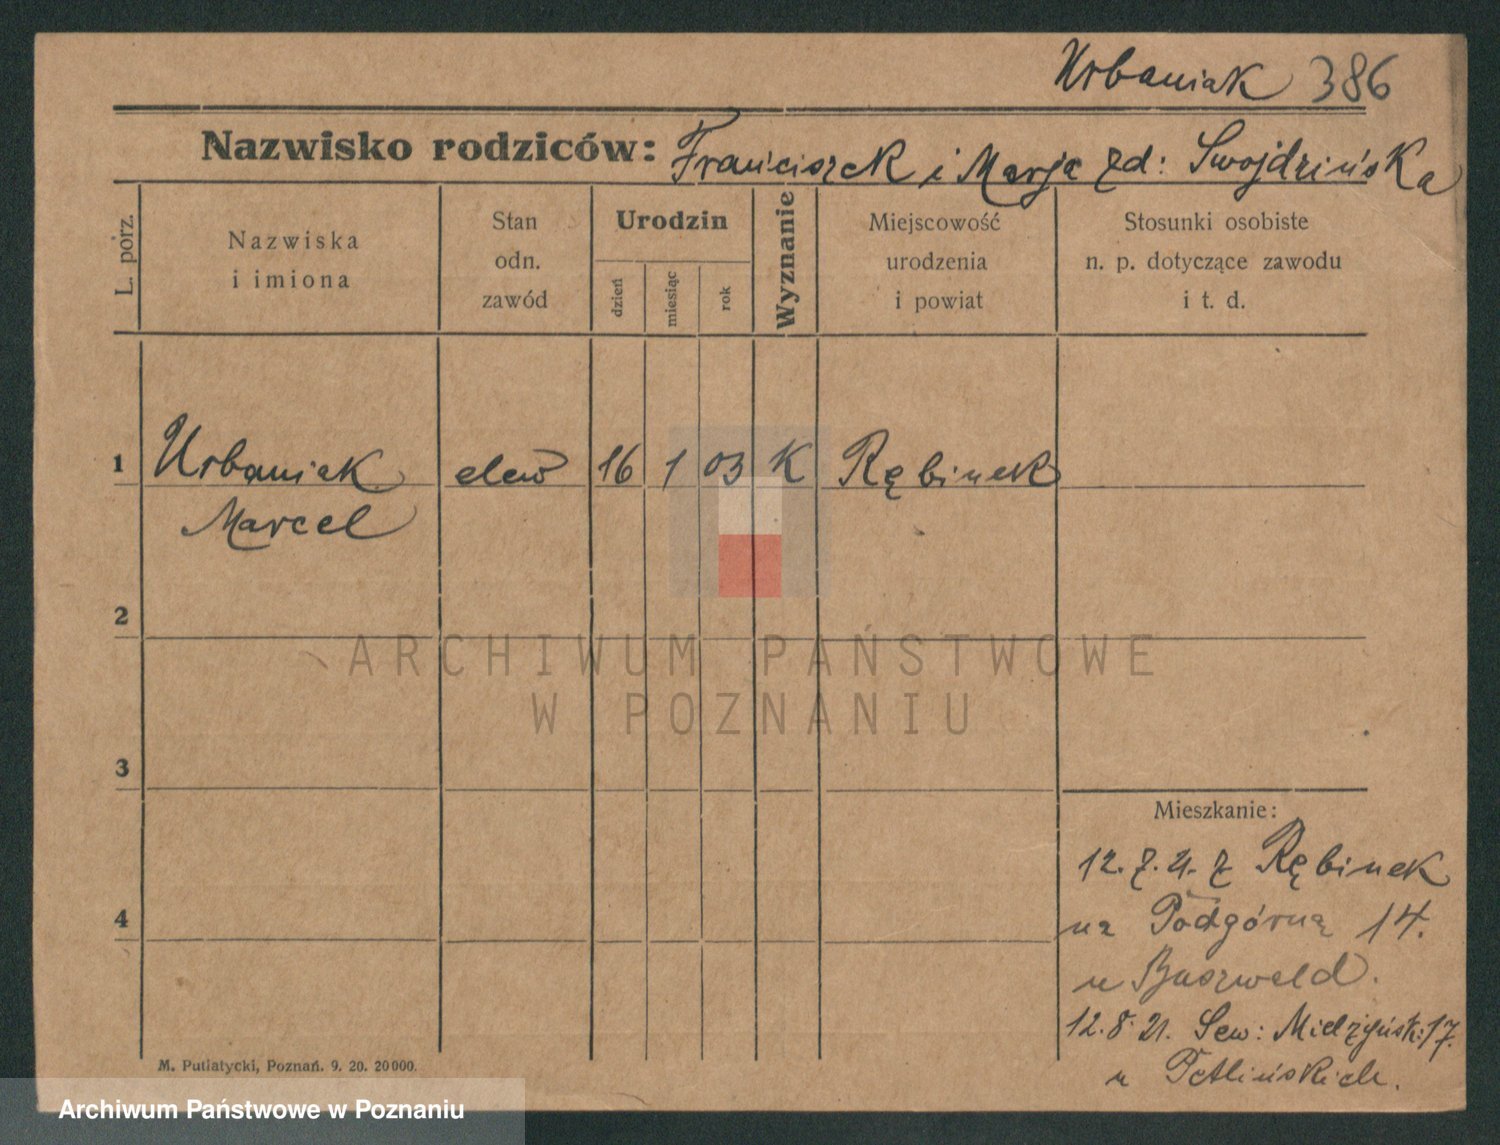 Urbaniak 386
Nazwisko rodziców: Franciszek i Marja zd: Swojdzińska
L. porz.
Nazwiska
i imiona
Stan
odn.
zawód
Urodzin
dzień
miesiąc
rok
Wyznanie
Miejscowość
urodzenia
i powiat
Stosunki osobiste
n. p. dotyczące zawodu
i t. d.
1 Urbaniak elew 16 1 03 K Rębinek
Marcel
2
ARCHIWUM PAŃSTWOWE
W POZNANIU
3
Mieszkanie:
12.7.21. z Rębinek
4
na Podgórną 14.
u Buszweld.
12.8.21. Sew: Mielżyńsk: 17.
u Petlińskich.
M. Putiatycki, Poznań. 9. 20. 20000.
Archiwum Państwowe w Poznaniu